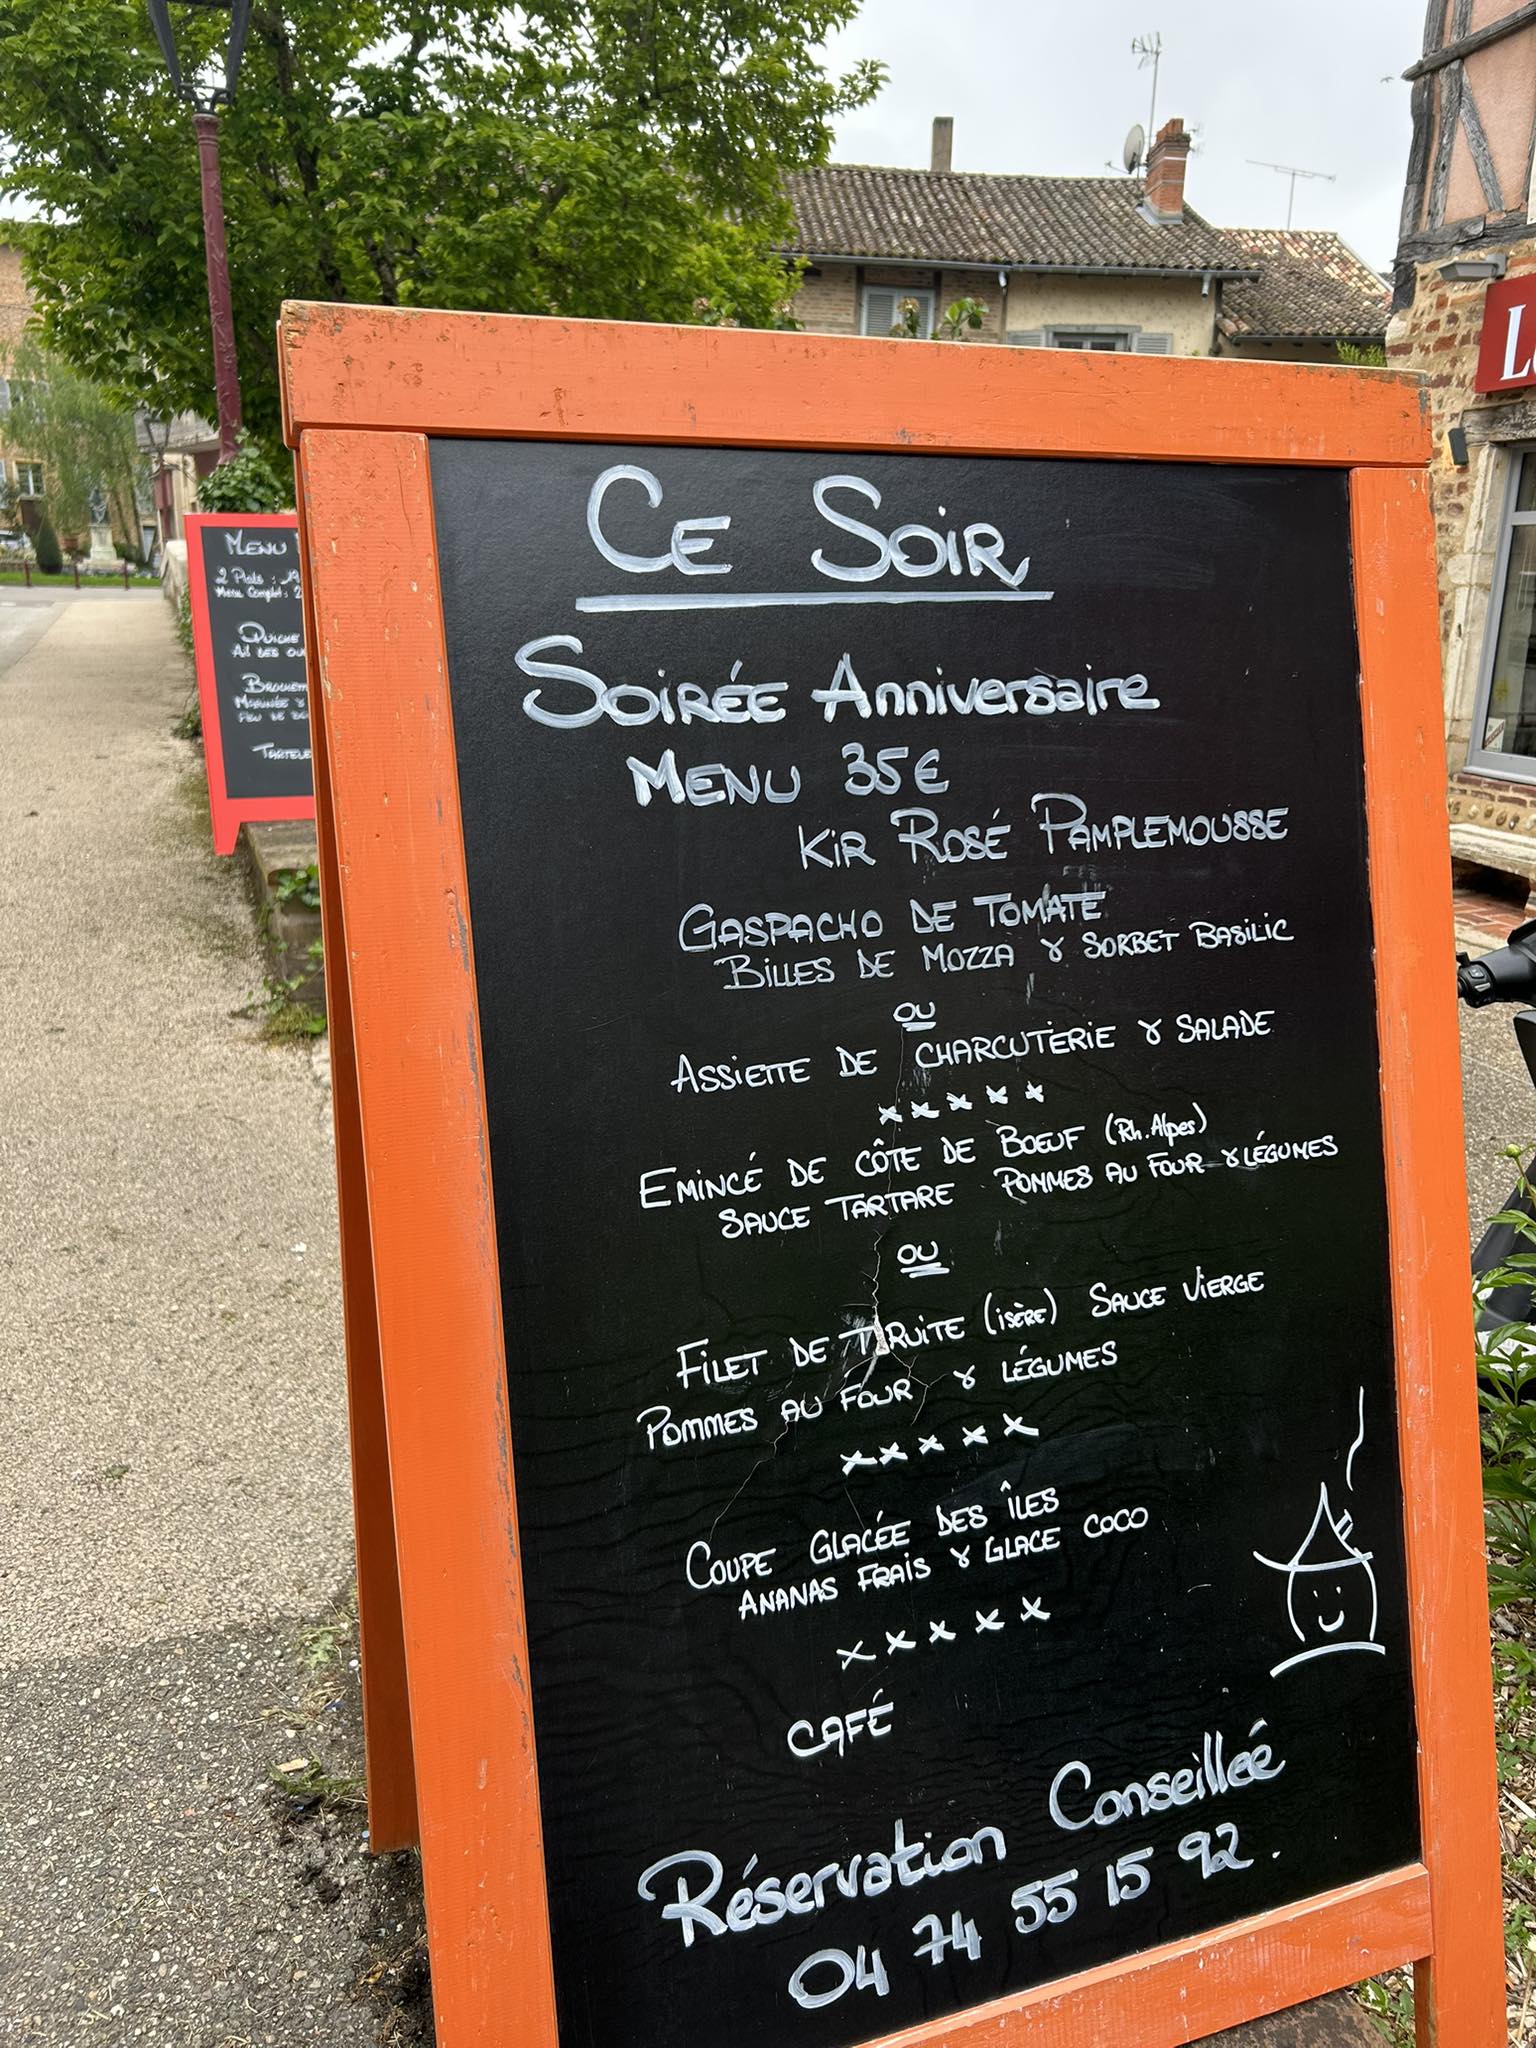 Ce Soir
Soirée Anniversaire
Menu 35€
Kir Rosé Pamplemousse
Gaspacho de Tomate
Billes de Mozza & Sorbet Basilic
ou
Assiette de Charcuterie & Salade
xxxxx
Emincé de Côte de Boeuf (Rh.Alpes)
Sauce Tartare Pommes au Four & Légumes
ou
Filet de Truite (isère) Sauce Vierge
Pommes au Four & Légumes
xxxxx
Coupe Glacée des Îles
Ananas Frais & Glace Coco
xxxxx
Café
Réservation Conseilleé
04 74 55 15 92.
Menu
2 Plats :
Menu Complet : 2
Quiche
Ail des